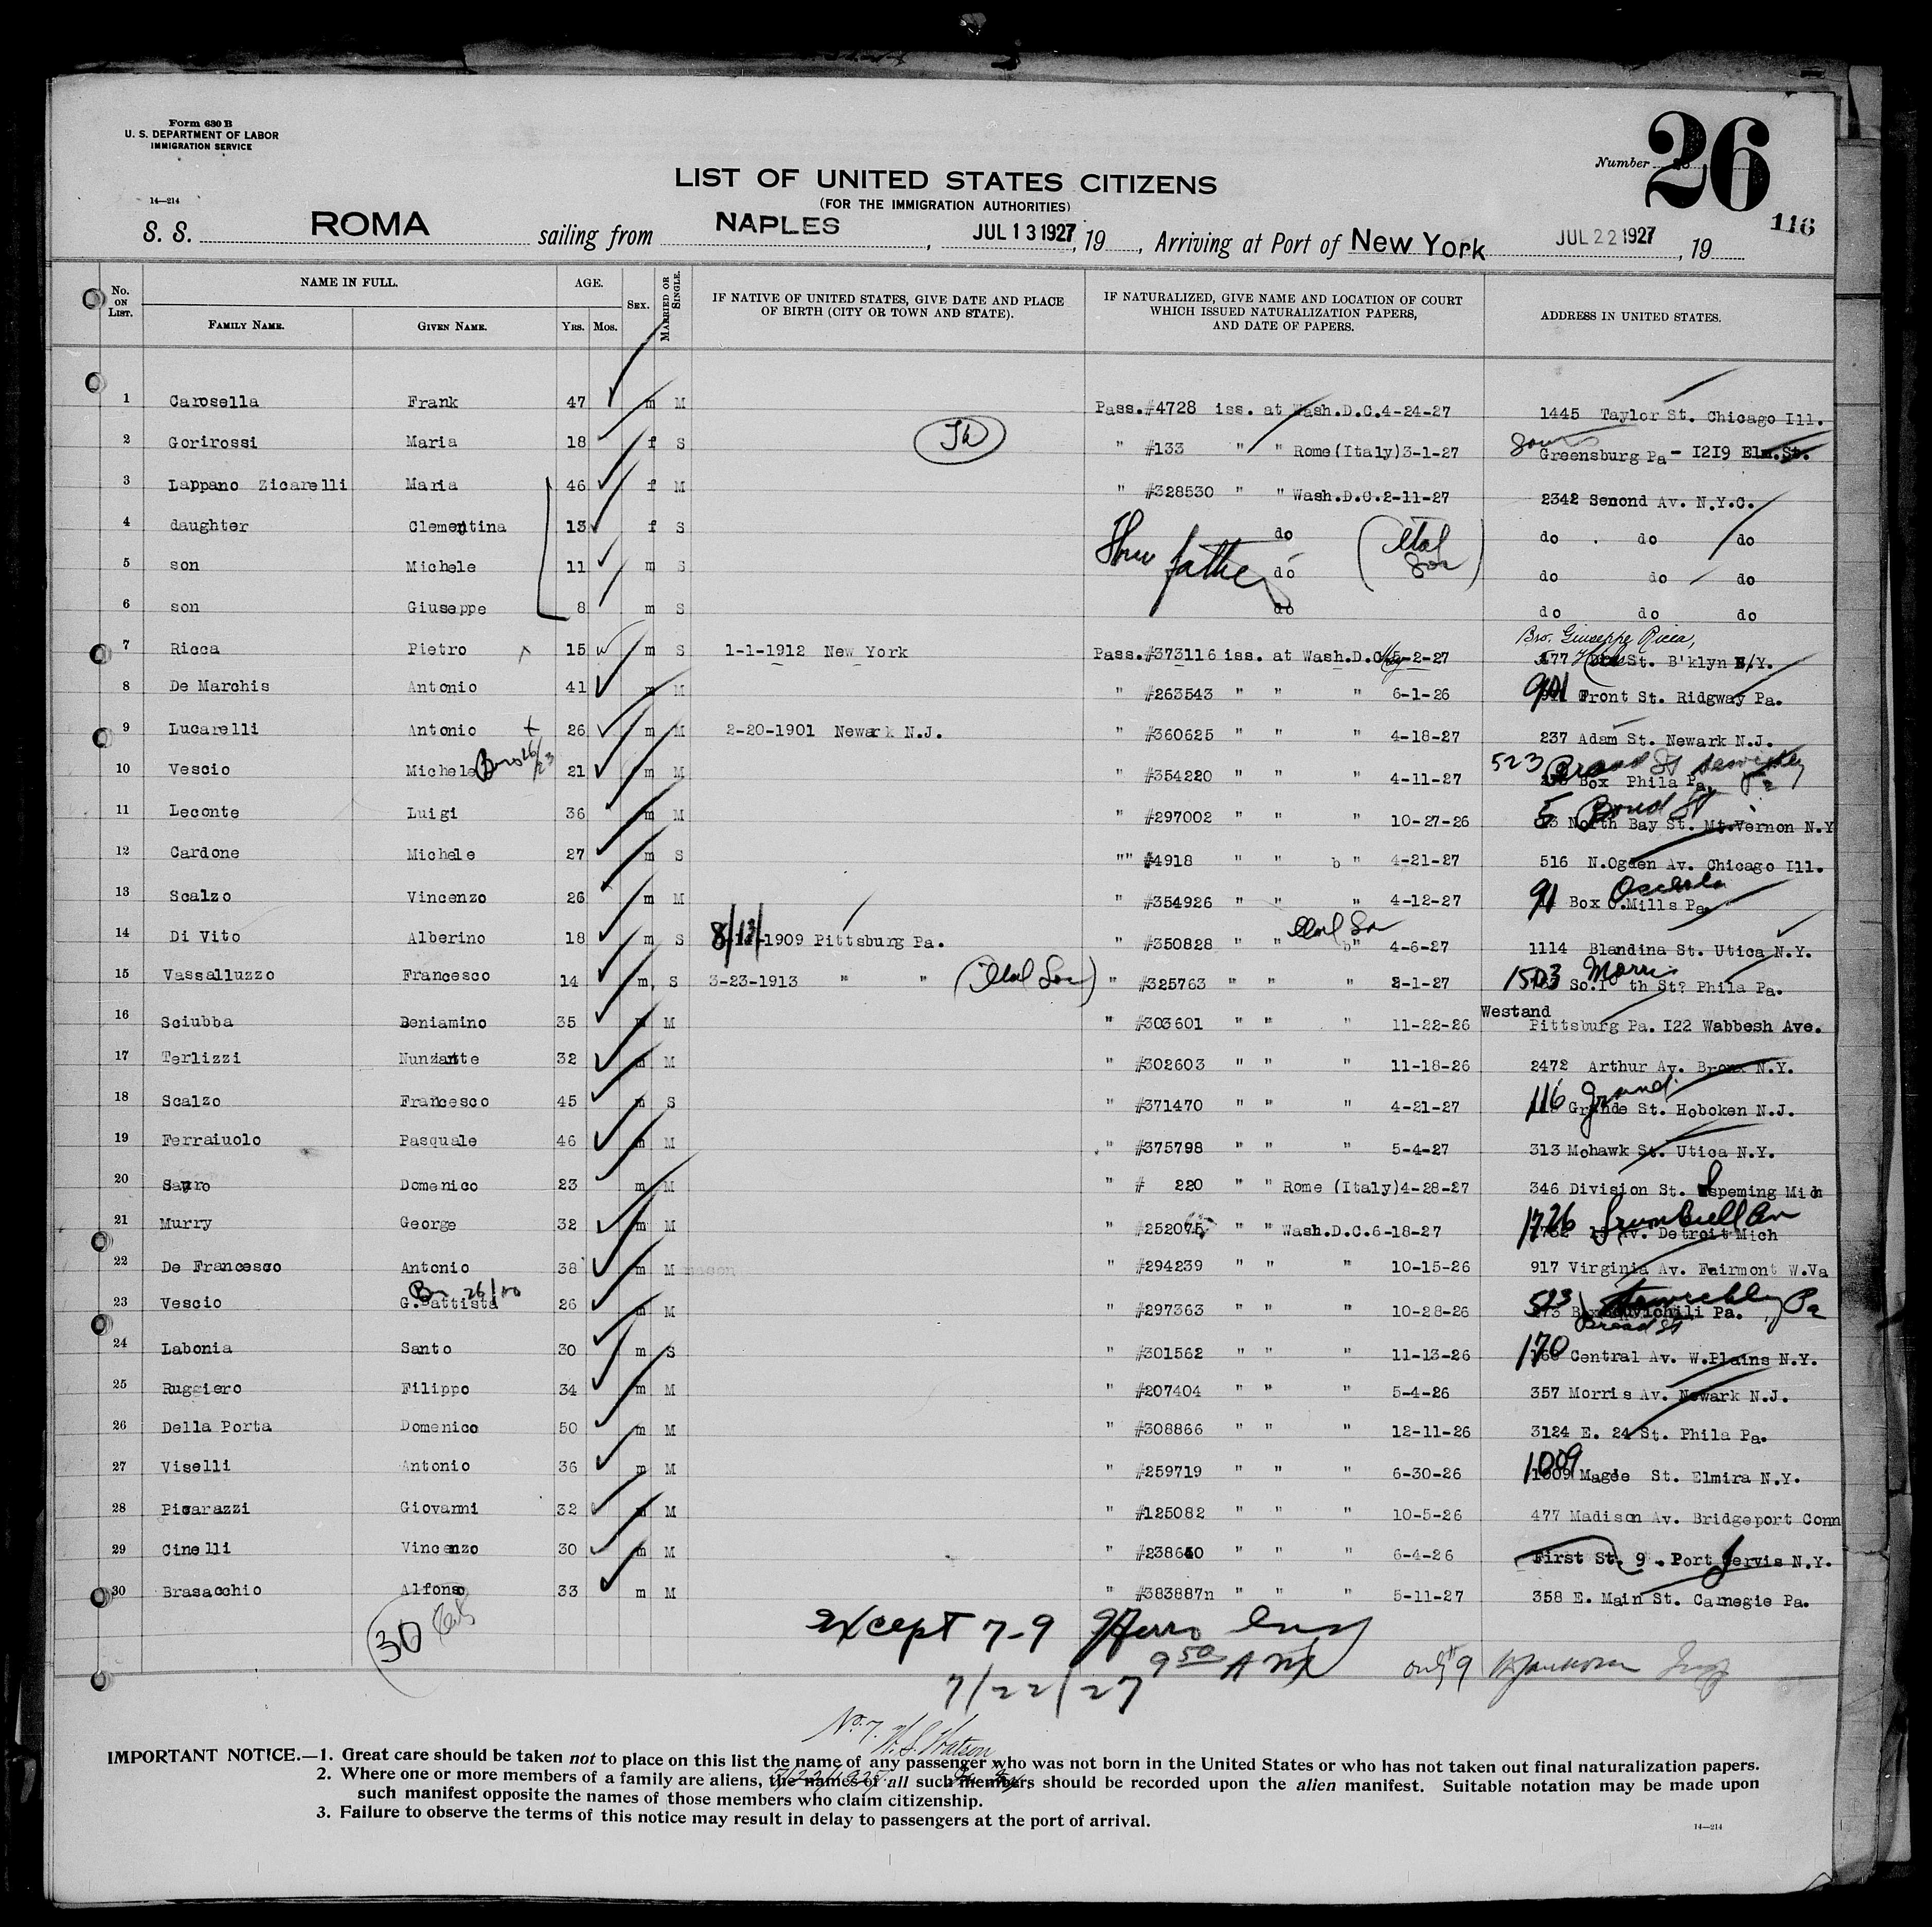 Form 630 B
U. S. DEPARTMENT OF LABOR
IMMIGRATION SERVICE
14—214
Number 26
116
LIST OF UNITED STATES CITIZENS
(FOR THE IMMIGRATION AUTHORITIES)
S. S. ROMA sailing from NAPLES, JUL 13 1927, 19, Arriving at Port of New York JUL 22 1927, 19
No. ON LIST. NAME IN FULL. AGE. SEX. MARRIED OR SINGLE. IF NATIVE OF UNITED STATES, GIVE DATE AND PLACE OF BIRTH (CITY OR TOWN AND STATE). IF NATURALIZED, GIVE NAME AND LOCATION OF COURT WHICH ISSUED NATURALIZATION PAPERS, AND DATE OF PAPERS. ADDRESS IN UNITED STATES.
FAMILY NAME. GIVEN NAME. Yrs. Mos.
1 Carosella Frank 47 m M Pass.#4728 iss. at Wash.D.C.4-24-27 1445 Taylor St. Chicago Ill.
2 Gorirossi Maria 18 f S " #133 " " Rome(Italy)3-1-27 Greensburg Pa - 1219 Elm.St.
3 Lappano Zicarelli Maria 46 f M " #328530 " " Wash.D.C.2-11-27 2342 Senond Av. N.Y.C.
4 daughter Clementina 13 f S do do do do
5 son Michele 11 m S father do do do do
6 son Giuseppe 8 m S do do do do
Bro. Giuseppe Ricca,
7 Ricca Pietro 15 m S 1-1-1912 New York Pass.#373116 iss. at Wash.D.C. 5-2-27 377 St. B'klyn N.Y.
8 De Marchis Antonio 41 m M " #263543 " " " 6-1-26 901 Front St. Ridgway Pa.
9 Lucarelli Antonio 26 m M 2-20-1901 Newark N.J. " #360625 " " " 4-18-27 237 Adam St. Newark N.J.
523 Broad St Sewickley Pa
10 Vescio Michele 21 m M " #354220 " " " 4-11-27 Box Phila Pa.
5 Bond St
11 Leconte Luigi 36 m M " #297002 " " " 10-27-26 North Bay St. Mt.Vernon N.Y
12 Cardone Michele 27 m S "" #4918 " " b " 4-21-27 516 N.Ogden Av. Chicago Ill.
13 Scalzo Vincenzo 26 m M " #354926 " " " 4-12-27 91 Box O.Mills Pa. Osceola
14 Di Vito Alberino 18 m S 8/13/-1909 Pittsburg Pa. " #350828 " " b" 4-6-27 1114 Blandina St. Utica N.Y.
15 Vassalluzzo Francesco 14 m, S 3-23-1913 " " " #325763 " " " 2-1-27 1503 Morris So. th St? Phila Pa.
Westand
16 Sciubba Beniamino 35 m M " #303601 " " " 11-22-26 Pittsburg Pa. 122 Wabbesh Ave.
17 Terlizzi Nunziante 32 m M " #302603 " " " 11-18-26 2472 Arthur Av. Bronx N.Y.
18 Scalzo Francesco 45 m S " #371470 " " " 4-21-27 116 Grand Grande St. Hoboken N.J.
19 Ferraiuolo Pasquale 46 m M " #375798 " " " 5-4-27 313 Mohawk St. Utica N.Y.
20 Domenico 23 m M " # 220 " " Rome (Italy)4-28-27 346 Division St. Ispeming Mich
21 Murry George 32 m M " #252075 " " Wash.D.C.6-18-27 1726 Trumbull Av Av. Detroit Mich
22 De Francesco Antonio 38 m M " #294239 " " " 10-15-26 917 Virginia Av. Fairmont W.Va
23 Vescio G.Battista 26 m M " #297363 " " " 10-28-26 523 Sewickley Pa Box Pa.
Broad St
24 Labonia Santo 30 m S " #301562 " " " 11-13-26 170 Central Av. W.Plains N.Y.
25 Ruggiero Filippo 34 m M " #207404 " " " 5-4-26 357 Morris Av. Newark N.J.
26 Della Porta Domenico 50 m M " #308866 " " " 12-11-26 3124 E. 24 St. Phila Pa.
27 Viselli Antonio 36 m M " #259719 " " " 6-30-26 1009 Magee St. Elmira N.Y.
28 Picarazzi Giovanni 32 m M " #125082 " " " 10-5-26 477 Madison Av. Bridgeport Conn
29 Cinelli Vincenzo 30 m M " #238640 " " " 6-4-26 First St. 9 . Port Jervis N.Y.
30 Brasacchio Alfonso 33 m M " #383887n " " " 5-11-27 358 E. Main St. Carnegie Pa.
30
except 7-9
9 50 AM
7/22/27
only 9
No. 7. W. S. Watson
IMPORTANT NOTICE.—1. Great care should be taken not to place on this list the name of any passenger who was not born in the United States or who has not taken out final naturalization papers.
2. Where one or more members of a family are aliens, the names of all such members should be recorded upon the alien manifest. Suitable notation may be made upon
such manifest opposite the names of those members who claim citizenship.
3. Failure to observe the terms of this notice may result in delay to passengers at the port of arrival.
14—214